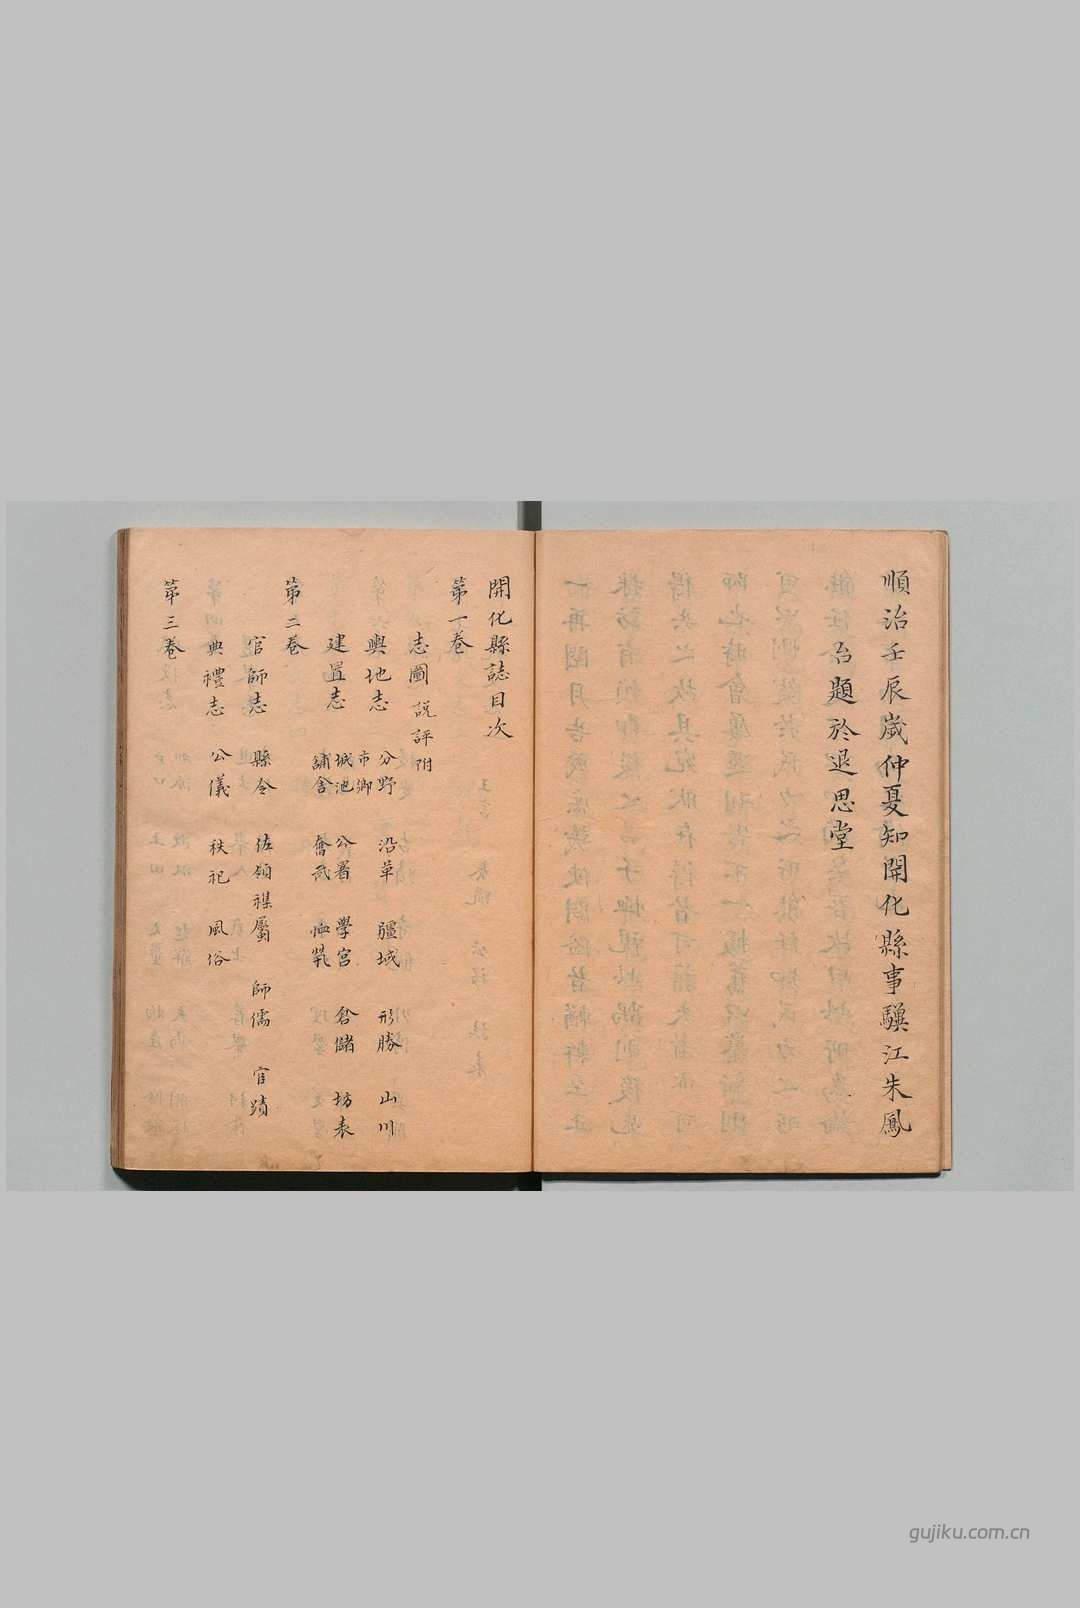 順治壬辰歲仲夏知開化縣事驥江朱鳳
台題於退思堂
開化縣誌目次
第一卷
志圖 説評附
輿地志 分野 沿革 疆域 形勝 山川
市鄉
建置志 城池 公署 學宮 倉儲 坊表
舖舍 奮武 恤煢
第二卷
官師志 縣令 佐領襍屬 師儒 官蹟
典禮志 公儀 秩祀 風俗
第三卷
gujiku.com.cn